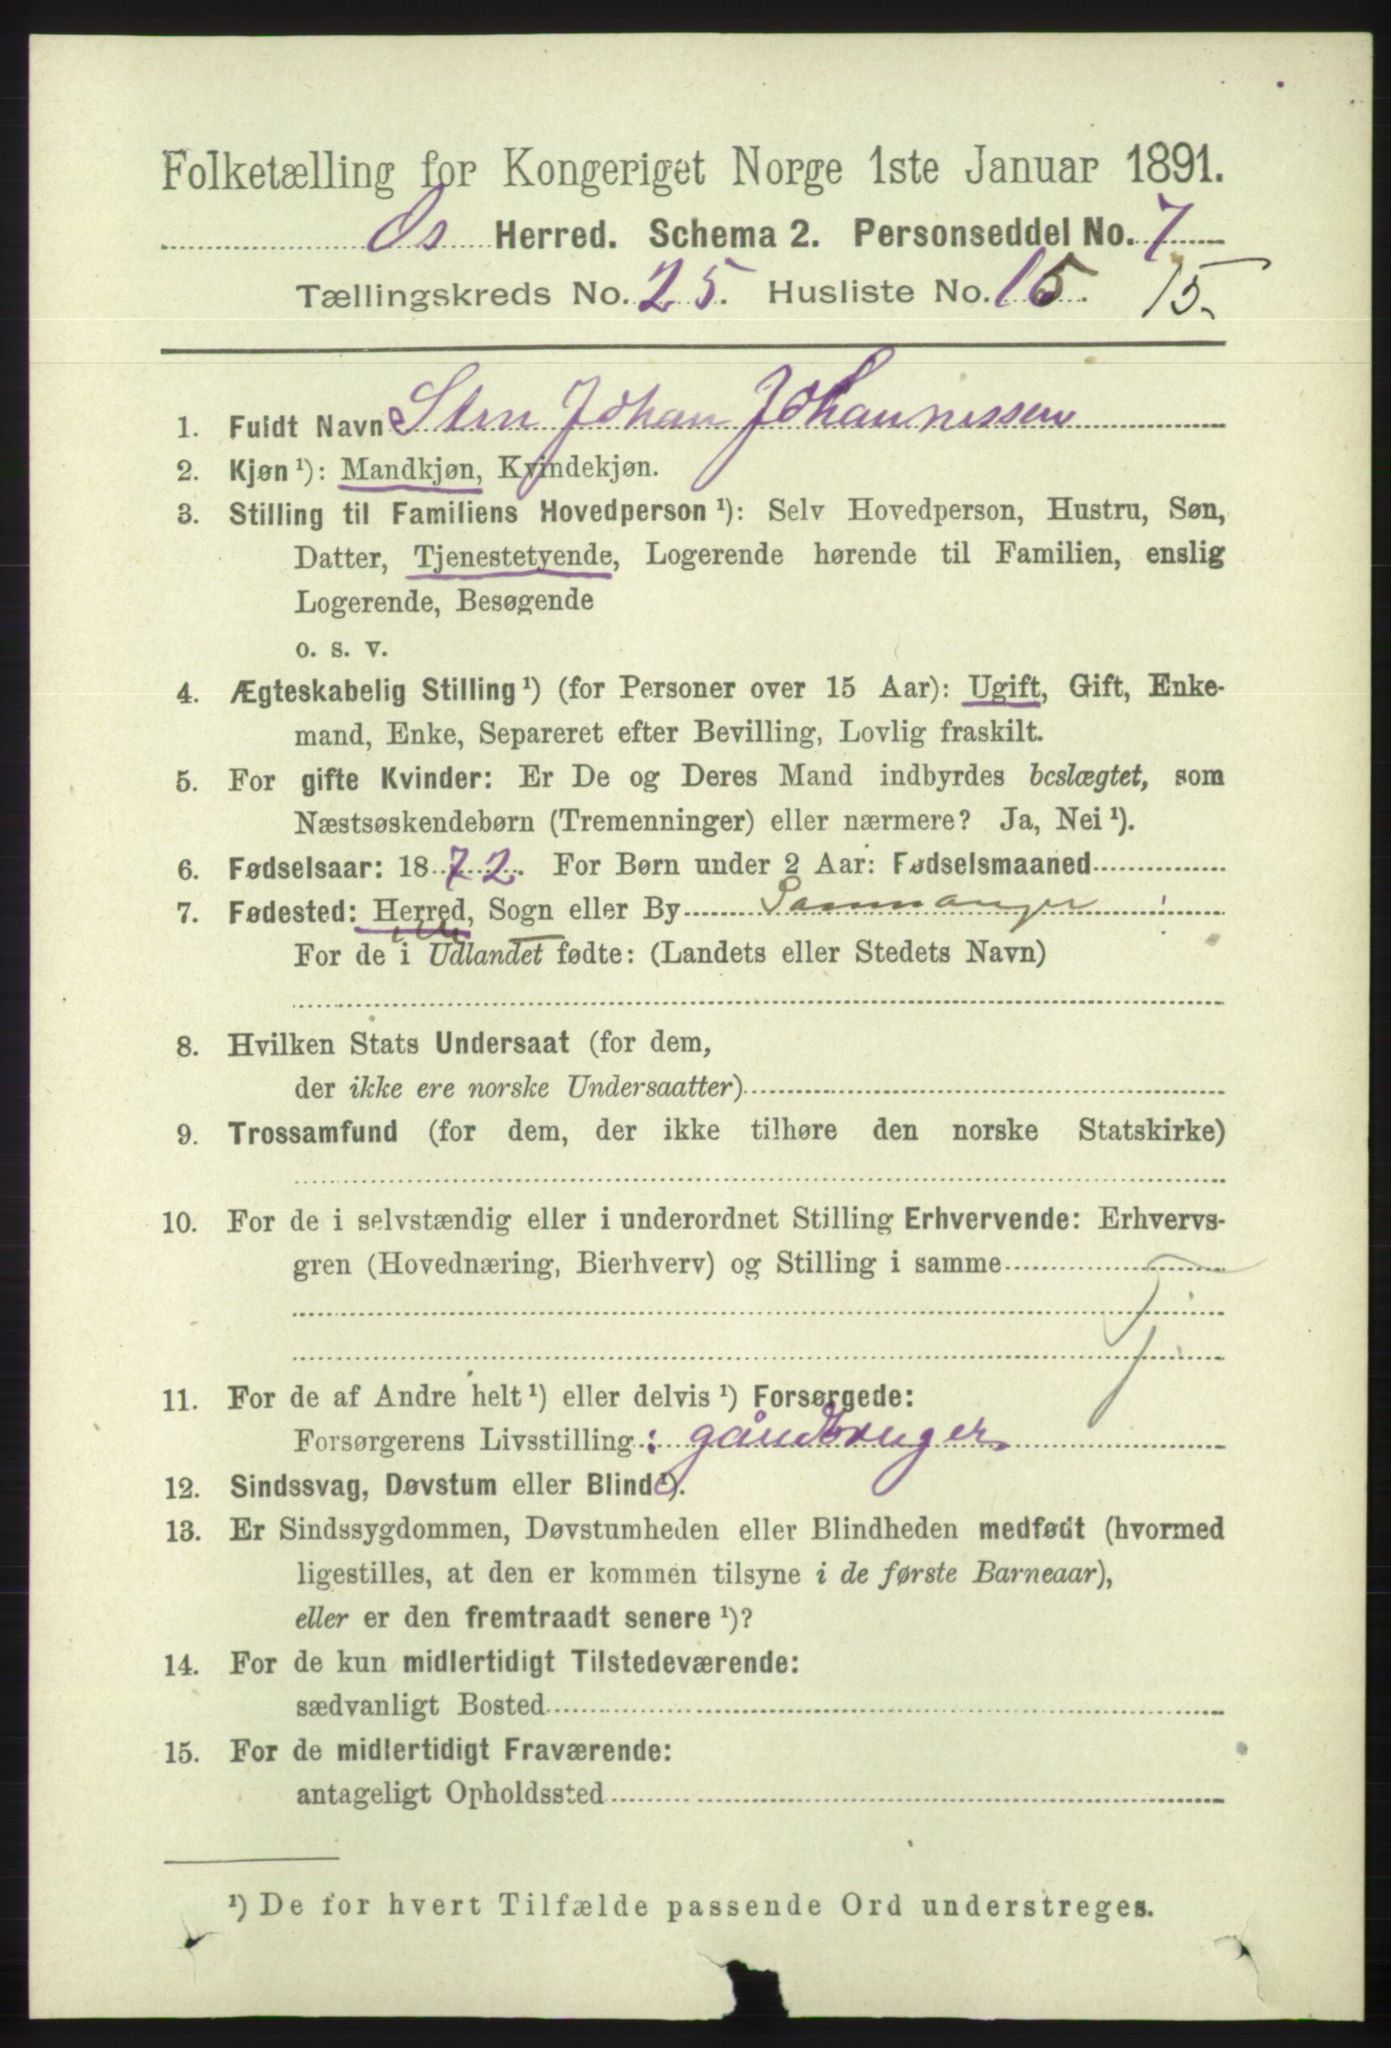 Folketælling for Kongeriget Norge 1ste Januar 1891.
Os Herred. Schema 2. Personseddel No. 7
Tællingskreds No. 25. Husliste No. 15. 15.
1. Fuldt Navn Sten Johan Johannessen
2. Kjøn ¹): Mandkjøn, Kvindekjøn.
3. Stilling til Familiens Hovedperson ¹): Selv Hovedperson, Hustru, Søn,
Datter, Tjenestetyende, Logerende hørende til Familien, enslig
Logerende, Besøgende
o. s. v.
4. Ægteskabelig Stilling ¹) (for Personer over 15 Aar): Ugift, Gift, Enke-
mand, Enke, Separeret efter Bevilling, Lovlig fraskilt.
5. For gifte Kvinder: Er De og Deres Mand indbyrdes beslægtet, som
Næstsøskendebørn (Tremenninger) eller nærmere? Ja, Nei ¹).
6. Fødselsaar: 1872. For Børn under 2 Aar: Fødselsmaaned
7. Fødested: Herred, Sogn eller By Sammanger
For de i Udlandet fødte: (Landets eller Stedets Navn)
8. Hvilken Stats Undersaat (for dem,
der ikke ere norske Undersaatter)
9. Trossamfund (for dem, der ikke tilhøre den norske Statskirke)
10. For de i selvstændig eller i underordnet Stilling Erhvervende: Erhvervs-
gren (Hovednæring, Bierhverv) og Stilling i samme
11. For de af Andre helt ¹) eller delvis ¹) Forsørgede:
Forsørgerens Livsstilling: gårdbruger
12. Sindssvag, Døvstum eller Blind ¹).
13. Er Sindssygdommen, Døvstumheden eller Blindheden medfødt (hvormed
ligestilles, at den er kommen tilsyne i de første Barneaar),
eller er den fremtraadt senere ¹)?
14. For de kun midlertidigt Tilstedeværende:
sædvanligt Bosted
15. For de midlertidigt Fraværende:
antageligt Opholdssted
¹) De for hvert Tilfælde passende Ord understreges.